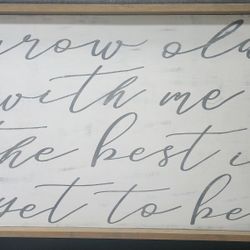 row old
with me
the best i
yet to be